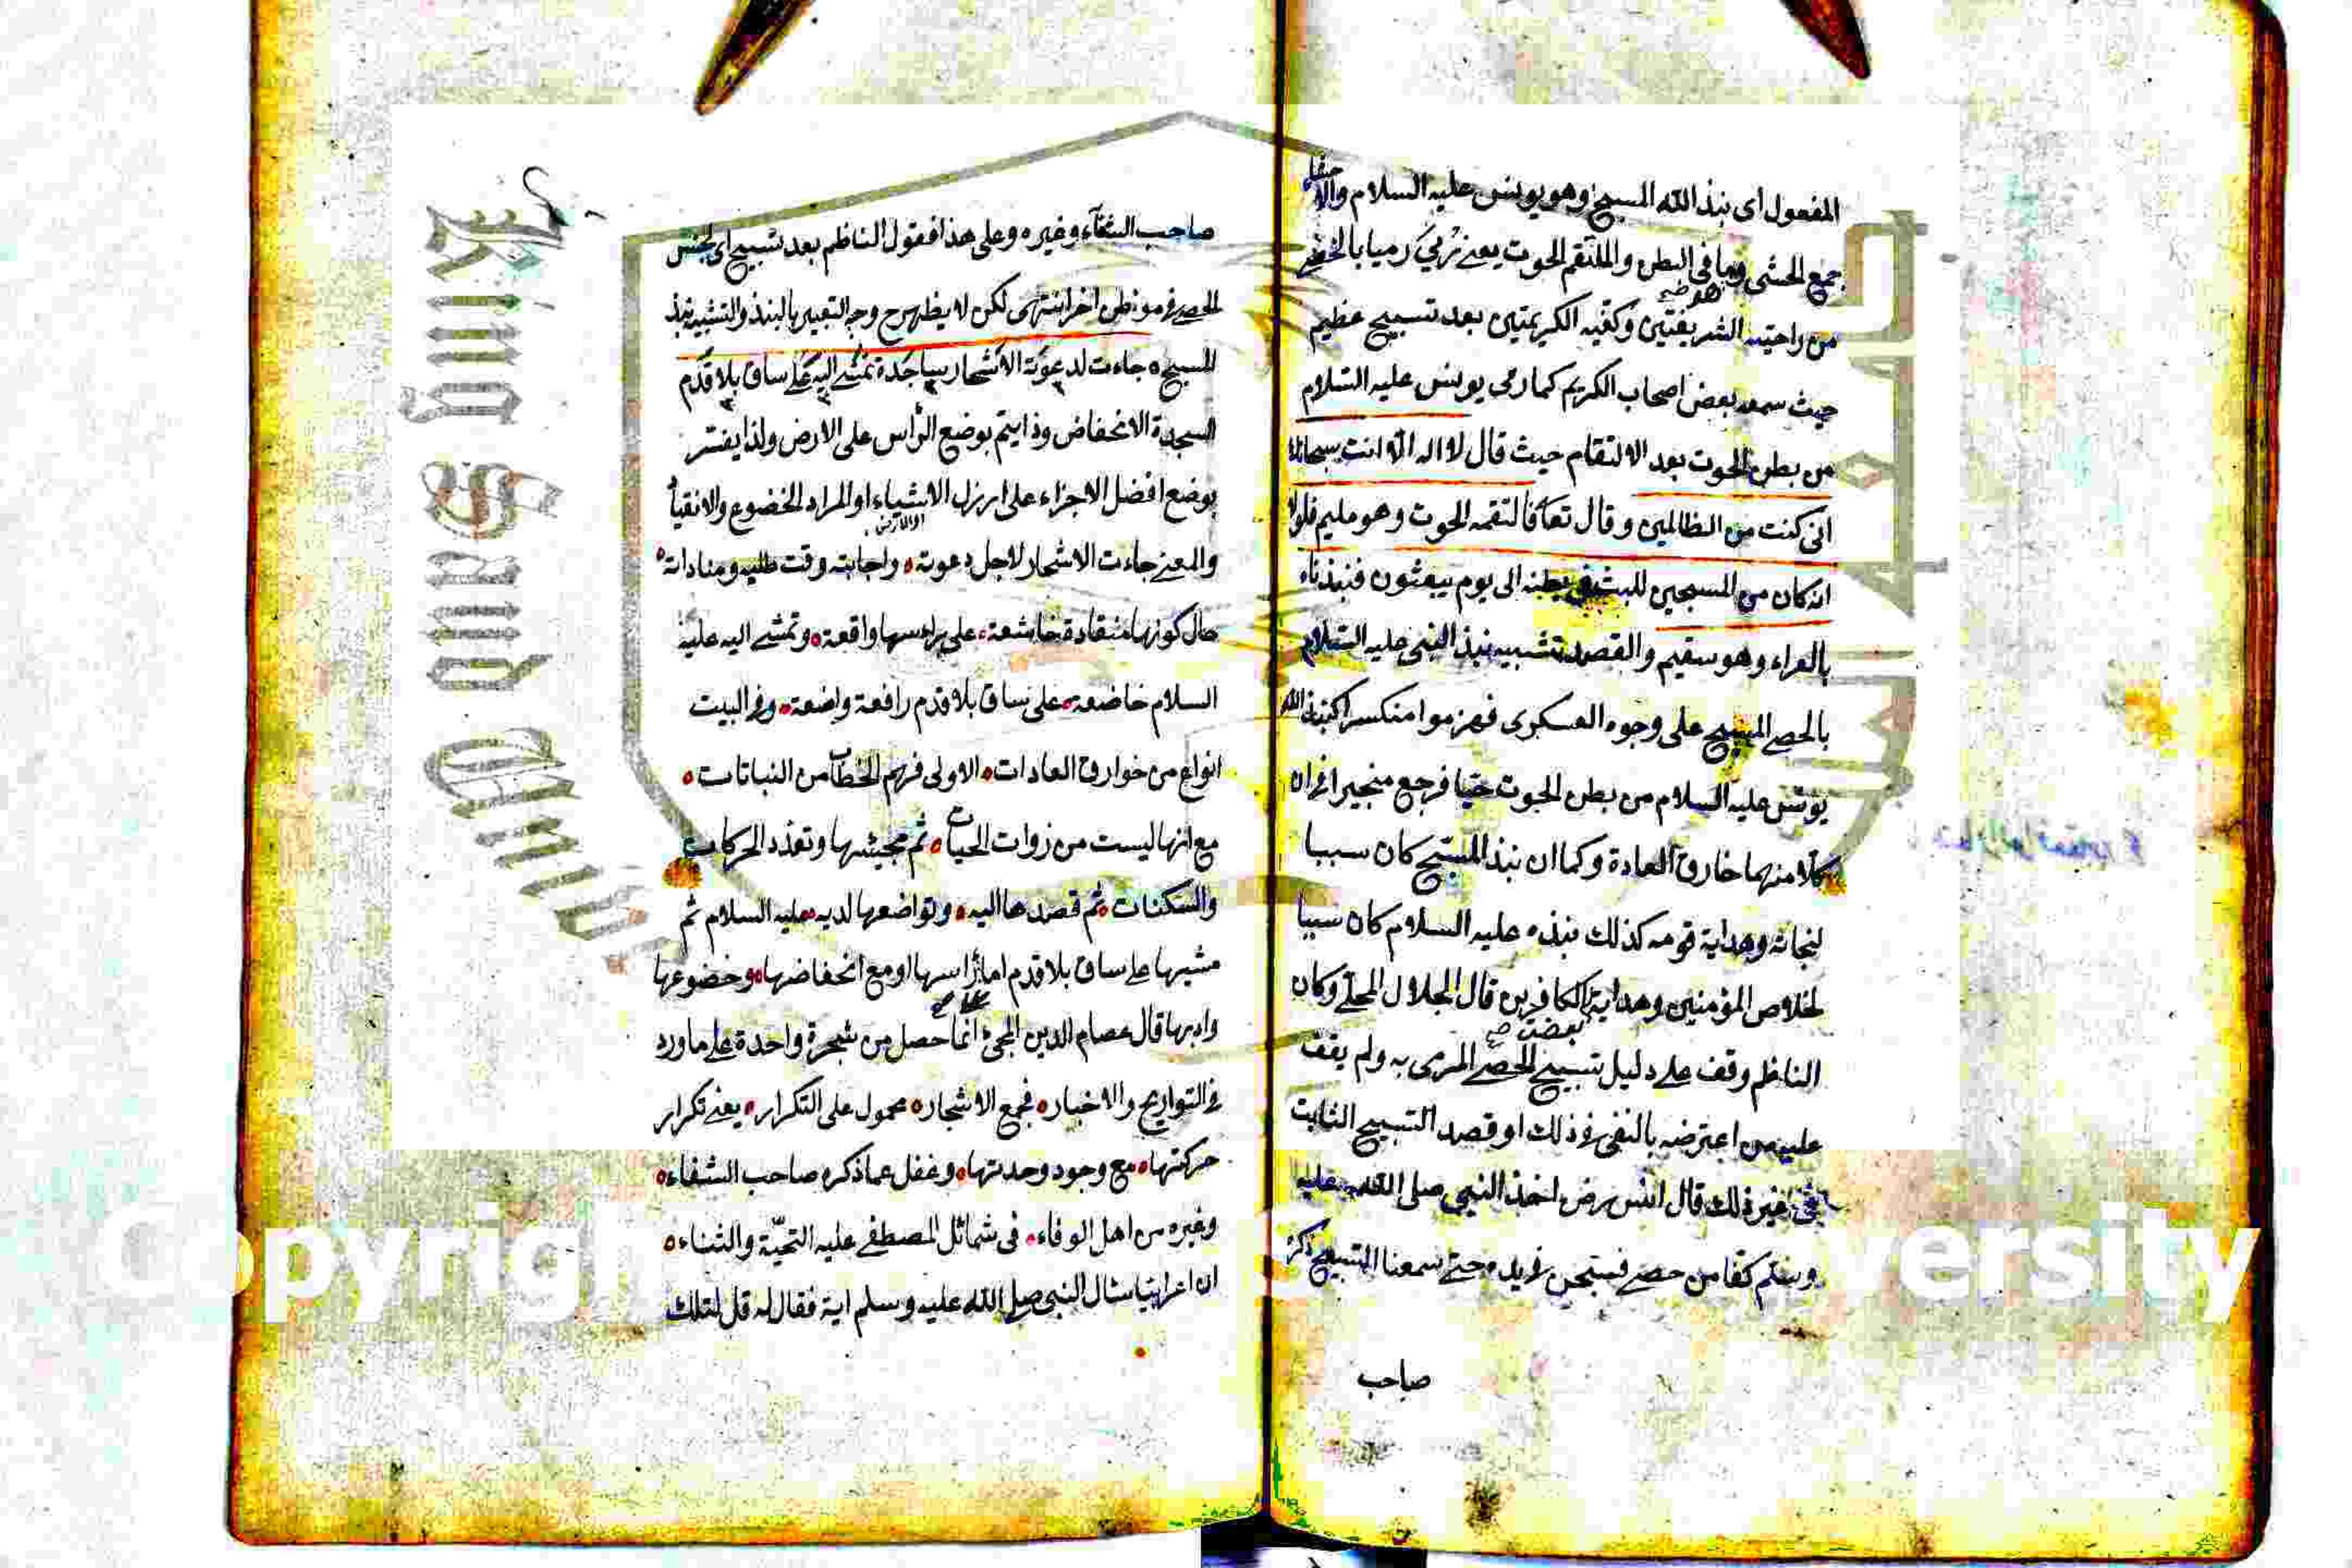 المفعول اى نبذ الله المسبح وهو يونس عليه السلام والاحشاء
جمع الحشى وما فى البطن والملتقم الحوت يعنى رمى رميا بالحصى
من راحتيه الشريفتين وكفيه الكريمتين بعد تسبيح عظيم
حيث سمعه بعض اصحاب الكريم كما رمى يونس عليه السلام
من بطن الحوت بعد الالتقام حيث قال لا اله الا انت سبحانك
انى كنت من الظالمين وقال تعا فالتقمه الحوت وهو مليم فلولا
انه كان من المسبحين للبث فى بطنه الى يوم يبعثون فنبذناه
بالعراء وهو سقيم والقصد تشبيه نبذ النبى عليه السلام
بالحصى المسبح على وجوه العسكرى فهزموا منكسرا كنبذ الله
يونس عليه السلام من بطن الحوت حيا فرجع منجبرا فى ان
كلا منهما خارق العادة وكما ان نبذ المسبح كان سببا
لنجاته وهداية قومه كذلك نبذه عليه السلام كان سببا
لخلاص المؤمنين وهداية الكافرين قال الجلال المحلى وكان
بعض
الناظم وقف على دليل تسبيح الحصى المرمى به ولم يقف
عليه من اعترضه بالنفى فى ذلك او قصد التسبيح الثابت
فى غير ذلك قال انس رض اخذ النبى صلى الله عليه
وسلم كفا من حصى فسبحن فى يده حتى سمعنا التسبيح ذكره
صاحب
صاحب الشفاء وغيره وعلى هذا فقول الناظم بعد تسبيح اى لجنس
الحصى فى موطن اخر انتهى لكن لا يظهر ح وجه التعبير بالنبذ والتشبيه بنبذ
المسبح جاءت لدعوته الاشجار ساجدة تمشى اليه على ساق بلا قدم
السجدة الانخفاض وذا يتم بوضع الرأس على الارض ولذا يفسر
بوضع افضل الاجزاء على ارزل الاشياء او المراد الخضوع والانقياد
والمعنى جاءت الاشجار لاجل دعوته واجابته وقت طلبه ومناداته
حال كونها منقادة خاشعة على راسها واقعة وتمشى اليه عليه
السلام خاضعة على ساق بلا قدم رافعة واضعة وفى البيت
انواع من خوارق العادات الاولى فهم الخطاب من النباتات
مع انها ليست من زوات الحيات ثم مجيئها وتعدد الحركات
والسكنات ثم قصدها اليه وتواضعها لديه عليه السلام ثم
مشيها على ساق بلا قدم اما رأسها او مع انخفاضها وخضوعها
وادبها قال عصام الدين المجئ انما حصل من شجرة واحدة على ما ورد
فى التواريخ والاخبار فجمع الاشجار محمول على التكرار يعنى تكرار
حركتها مع وجود وحدتها وغفل عما ذكره صاحب الشفاء
وغيره من اهل الوفاء فى شمائل المصطفى عليه التحية والثناء
ان اعرابيا سال النبى صلى الله عليه وسلم اية فقال له قل لتلك
King Saud Univ
Copyrigh
ersity